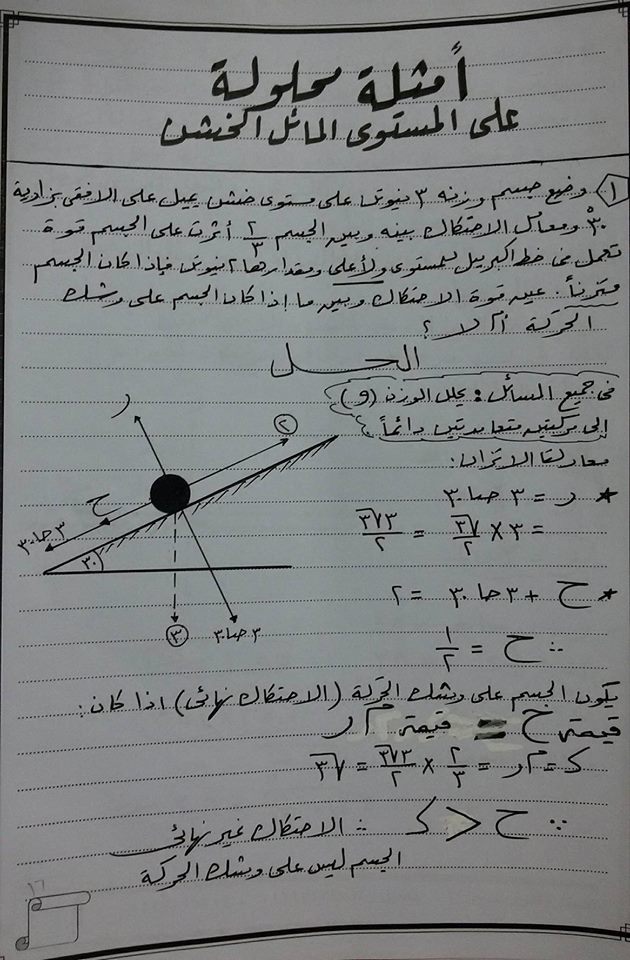 أمثلة محلولة
على المستوى المائل الخشن
١ وضع جسم وزنه ٣ نيوتن على مستوى خشن يميل على الافقى بزاوية
٣٠° ومعامل الاحتكاك بينه وبين الجسم ٢/٣ أثرت على الجسم قوة
تعمل فى خط اكبر ميل للمستوى ولأعلى ومقدارها ٢ نيوتن فإذا كان الجسم
متزناً. عين قوة الاحتكاك وبين ما إذا كان الجسم على وشك
الحركة أم لا ؟
الحـــل
فى جميع المسائل: يحلل الوزن (و)
إلى مركبتين متعامدتين دائماً
معادلتا الاتزان:
* ر = ٣ حتا ٣٠
= ٣ × √٣/٢ = ٣√٣/٢
* ح + ٣ حا ٣٠ = ٢
∴ ح = ١/٢
ر
٢
ح
٣ حا ٣٠
٣٠
٣
٣ حتا ٣٠
يكون الجسم على وشك الحركة (الاحتكاك نهائى) اذا كان:
قيمة ح = قيمة م ر
ك = م ر = ٢/٣ × ٣√٣/٢ = √٣
∵ ح < ك ∴ الاحتكاك غير نهائى
الجسم ليس على وشك الحركة